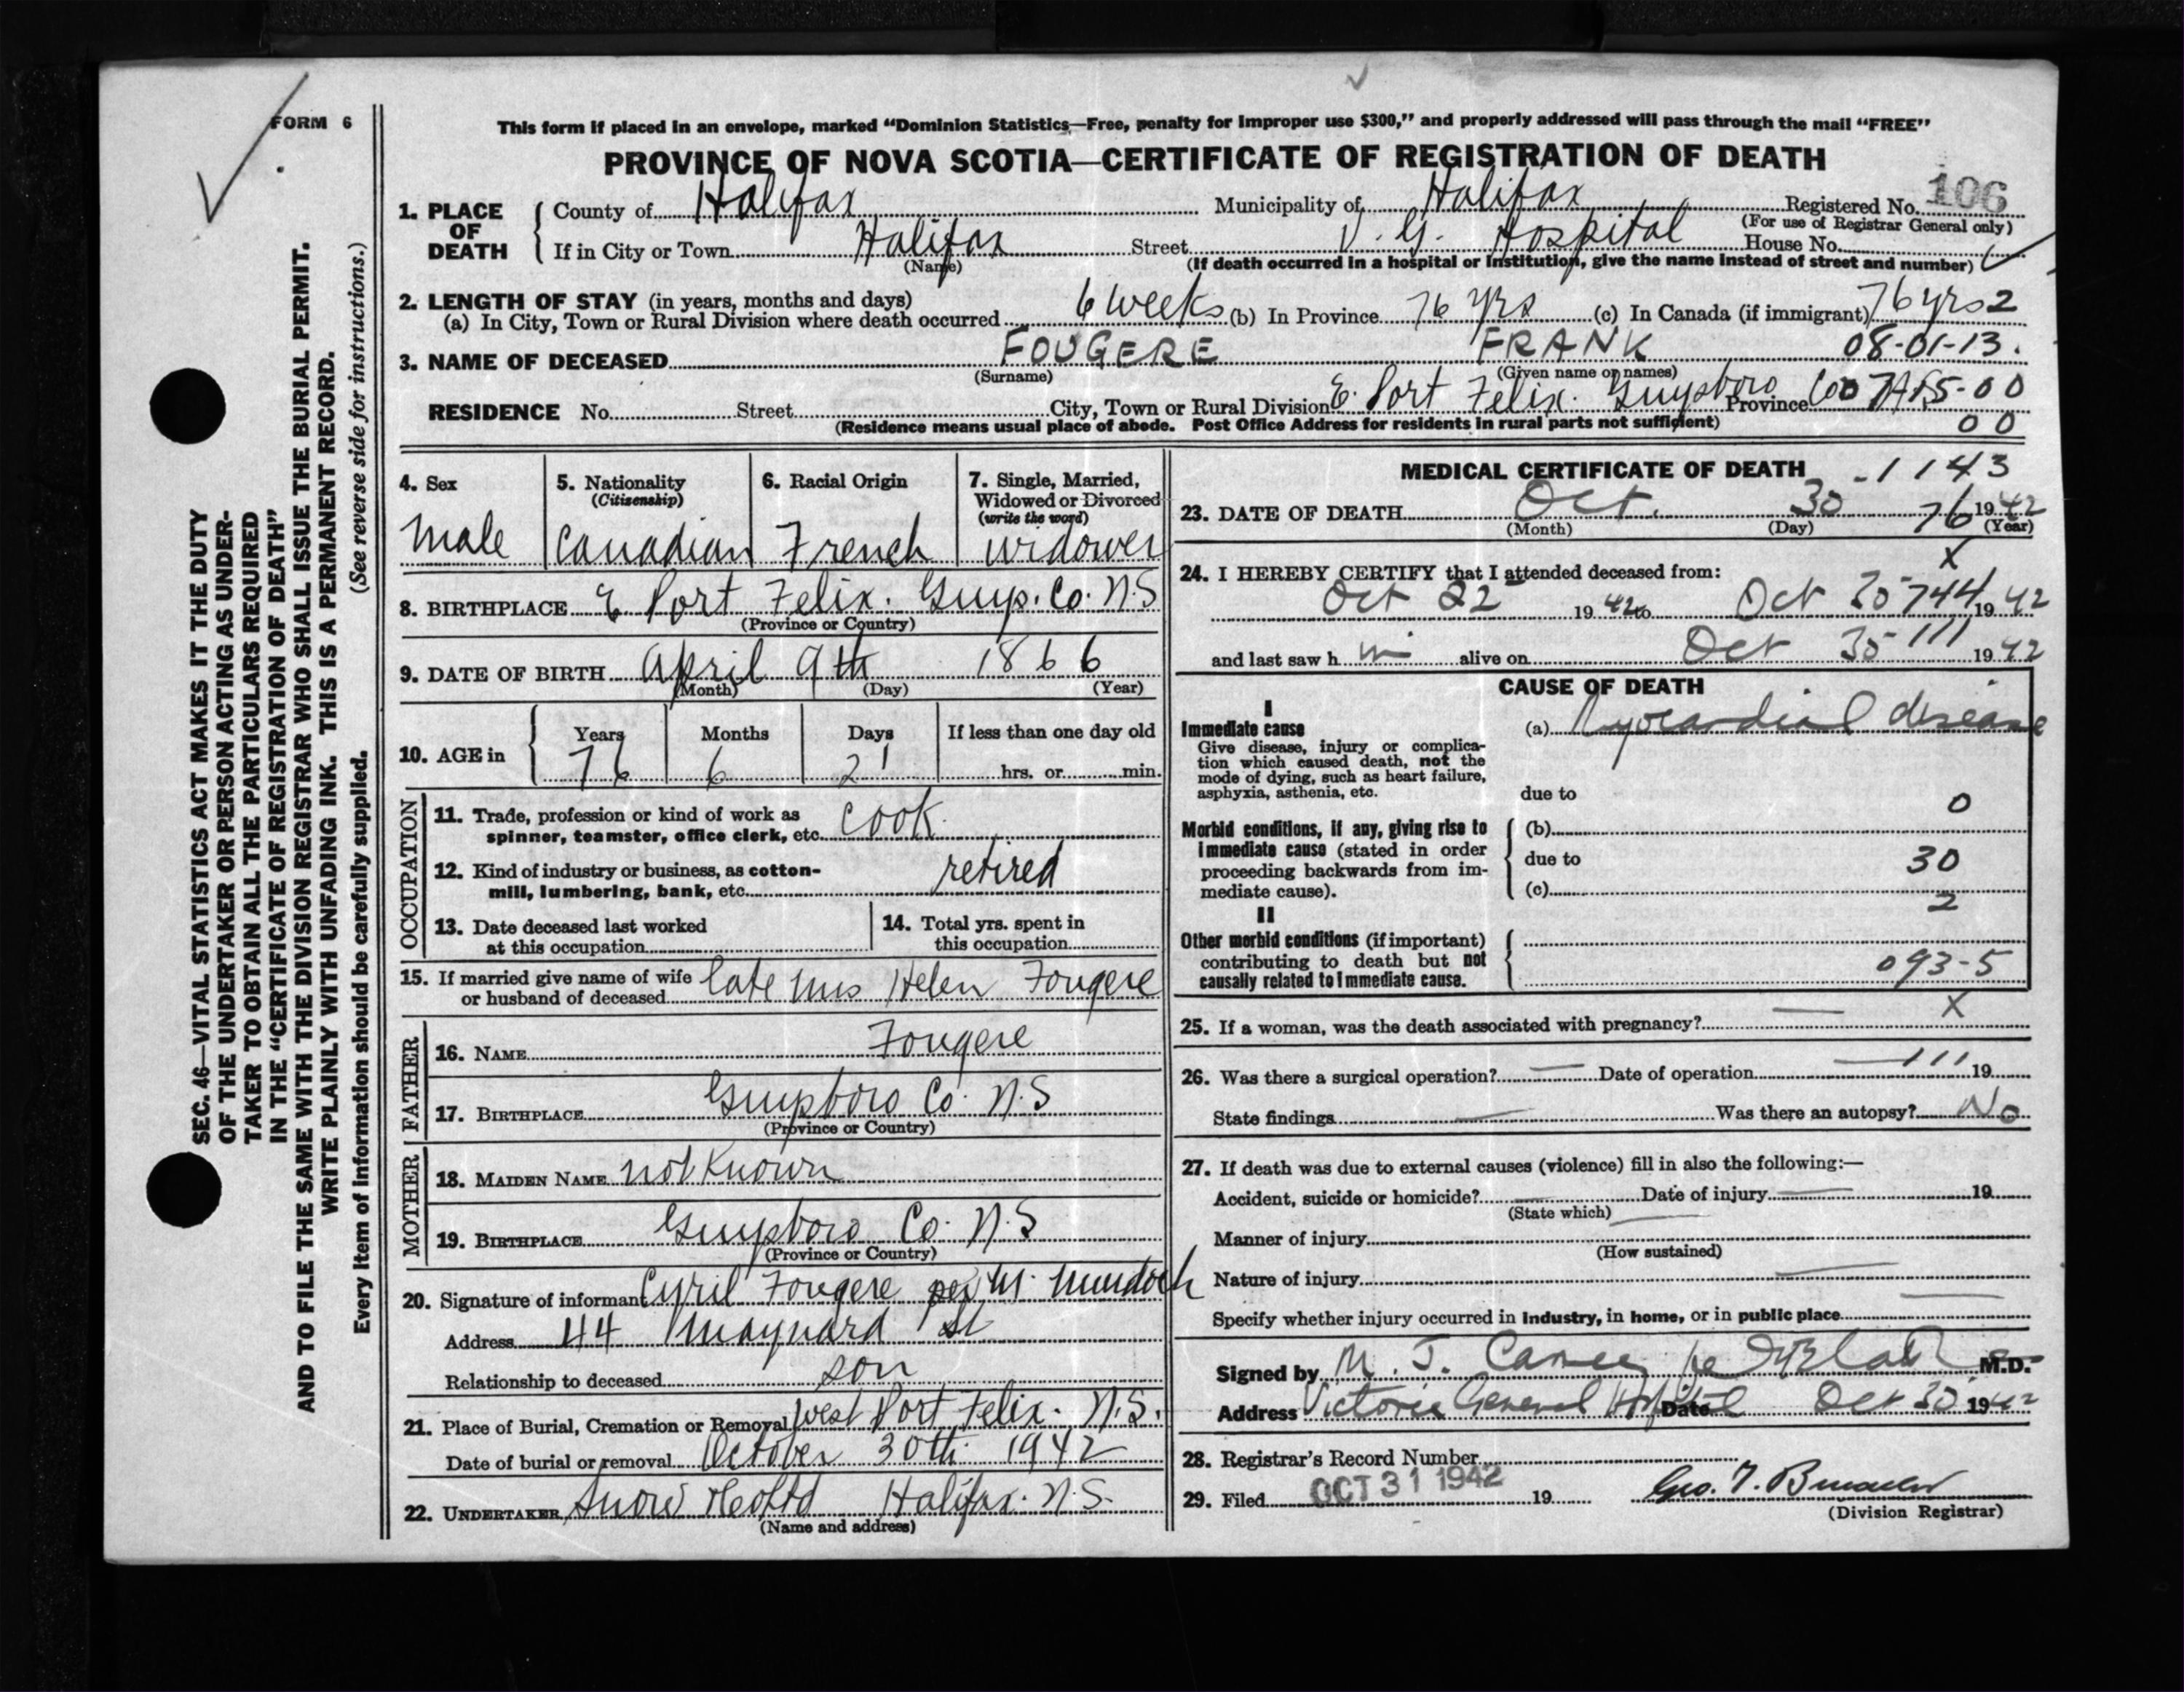 FORM 6
This form if placed in an envelope, marked “Dominion Statistics—Free, penalty for improper use $300,” and properly addressed will pass through the mail “FREE”
PROVINCE OF NOVA SCOTIA—CERTIFICATE OF REGISTRATION OF DEATH
1. PLACE OF DEATH
County of Halifax Municipality of Halifax Registered No. 106
(For use of Registrar General only)
If in City or Town Halifax Street V. G. Hospital House No.
(Name) (If death occurred in a hospital or institution, give the name instead of street and number)
2. LENGTH OF STAY (in years, months and days)
(a) In City, Town or Rural Division where death occurred 6 weeks (b) In Province 76 yrs (c) In Canada (if immigrant) 76 yrs 2
3. NAME OF DECEASED FOUGERE FRANK 08-01-13.
(Surname) (Given name or names)
RESIDENCE No. Street City, Town or Rural Division E. Port Felix. Guysboro Province Co
(Residence means usual place of abode. Post Office Address for residents in rural parts not sufficient) 00
4. Sex
male
5. Nationality
(Citizenship)
Canadian
6. Racial Origin
French
7. Single, Married,
Widowed or Divorced
(write the word)
widower
8. BIRTHPLACE E Port Felix. Guys. Co. N.S
(Province or Country)
9. DATE OF BIRTH April 9th 1866
(Month) (Day) (Year)
10. AGE in
Years Months Days If less than one day old
76 6 21 hrs. or min.
OCCUPATION
11. Trade, profession or kind of work as
spinner, teamster, office clerk, etc. Cook
12. Kind of industry or business, as cotton-
mill, lumbering, bank, etc. retired
13. Date deceased last worked
at this occupation
14. Total yrs. spent in
this occupation
15. If married give name of wife
or husband of deceased late Mrs Helen Fougere
FATHER
16. NAME Fougere
17. BIRTHPLACE Guysboro Co. N.S
(Province or Country)
MOTHER
18. MAIDEN NAME not Known
19. BIRTHPLACE Guysboro Co. N.S
(Province or Country)
20. Signature of informant Cyril Fougere per M. Murdoch
Address 44 Maynard St
Relationship to deceased son
21. Place of Burial, Cremation or Removal West Port Felix. N.S.
Date of burial or removal October 30th 1942
22. UNDERTAKER Snow & Co Ltd Halifax. N.S.
(Name and address)
MEDICAL CERTIFICATE OF DEATH -1143
23. DATE OF DEATH Oct. 30 76 1942
(Month) (Day) (Year)
X
24. I HEREBY CERTIFY that I attended deceased from:
Oct 22 1942 to Oct 30 744 1942
and last saw h im alive on Oct 30 111 1942
CAUSE OF DEATH
I
Immediate cause
Give disease, injury or complica-
tion which caused death, not the
mode of dying, such as heart failure,
asphyxia, asthenia, etc.
(a) Myocardial disease
due to
0
Morbid conditions, if any, giving rise to
immediate cause (stated in order
proceeding backwards from im-
mediate cause).
(b)
due to 30
(c)
2
II
Other morbid conditions (if important)
contributing to death but not
causally related to immediate cause.
093-5
25. If a woman, was the death associated with pregnancy? — X
26. Was there a surgical operation? — Date of operation — 111 19
State findings — Was there an autopsy? No
27. If death was due to external causes (violence) fill in also the following:—
Accident, suicide or homicide? — Date of injury — 19
(State which)
Manner of injury —
(How sustained)
Nature of injury —
Specify whether injury occurred in industry, in home, or in public place —
Signed by M. J. M.D.
Address Victoria General Hospital Date Oct 30 1942
28. Registrar's Record Number
29. Filed OCT 31 1942 19 Geo. T.
(Division Registrar)
SEC. 46—VITAL STATISTICS ACT MAKES IT THE DUTY
OF THE UNDERTAKER OR PERSON ACTING AS UNDER-
TAKER TO OBTAIN ALL THE PARTICULARS REQUIRED
IN THE “CERTIFICATE OF REGISTRATION OF DEATH”
AND TO FILE THE SAME WITH THE DIVISION REGISTRAR WHO SHALL ISSUE THE BURIAL PERMIT.
WRITE PLAINLY WITH UNFADING INK. THIS IS A PERMANENT RECORD.
Every item of information should be carefully supplied. (See reverse side for instructions.)